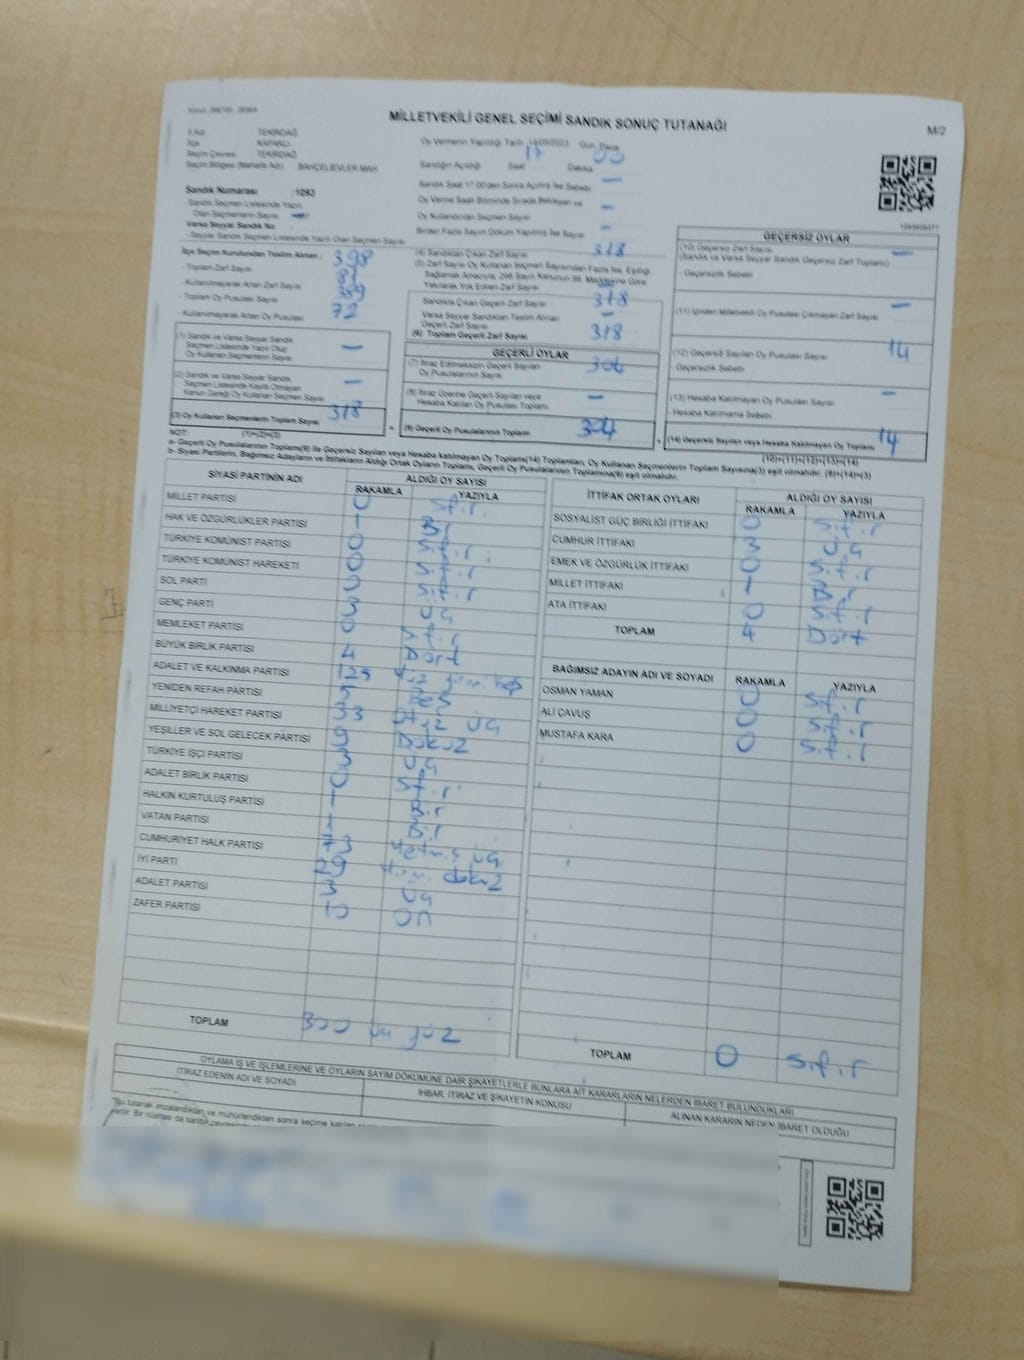 MİLLETVEKİLİ GENEL SEÇİMİ SANDIK SONUÇ TUTANAĞI
M/2
İl Adı TEKİRDAĞ
İlçe KAPAKLI
Seçim Çevresi TEKİRDAĞ
Seçim Bölgesi (Mahalle Adı) BAHÇELİEVLER MAH.
Sandık Numarası :1093
- Sandık Seçmen Listesinde Yazılı
Olan Seçmenlerin Sayısı
Varsa Seyyar Sandık No
- Seyyar Sandık Seçmen Listesinde Yazılı Olan Seçmen Sayısı
Oy Vermenin Yapıldığı Tarih 14/05/2023 Gün Pazar
Sandığın Açıldığı Saat 17 Dakika 00
Sandık Saat 17.00'den Sonra Açılmış İse Sebebi —
Oy Verme Saati Bitiminde Sırada Bekleyen ve —
Oy Kullandırılan Seçmen Sayısı
Birden Fazla Sayım Döküm Yapılmış İse Sayısı —
İlçe Seçim Kurulundan Teslim Alınan : 398
- Toplam Zarf Sayısı
- Kullanılmayarak Artan Zarf Sayısı
- Toplam Oy Pusulası Sayısı
- Kullanılmayarak Artan Oy Pusulası 72
(1) Sandık ve Varsa Seyyar Sandık
Seçmen Listesinde Yazılı Olup
Oy Kullanan Seçmenlerin Sayısı —
(2) Sandık ve Varsa Seyyar Sandık
Seçmen Listesinde Kaydı Olmayan
Kanun Gereği Oy Kullanan Seçmen Sayısı —
(3) Oy Kullanan Seçmenlerin Toplam Sayısı 318
(4) Sandıktan Çıkan Zarf Sayısı 318
(5) Zarf Sayısı Oy Kullanan Seçmen Sayısından Fazla İse, Eşitliği
Sağlamak Amacıyla, 298 Sayılı Kanunun 98. Maddesine Göre
Yakılarak Yok Edilen Zarf Sayısı —
Sandıkta Çıkan Geçerli Zarf Sayısı 318
Varsa Seyyar Sandıktan Teslim Alınan
Geçerli Zarf Sayısı —
(6) Toplam Geçerli Zarf Sayısı 318
GEÇERLİ OYLAR
(7) İtiraz Edilmeksizin Geçerli Sayılan
Oy Pusulalarının Sayısı 304
(8) İtiraz Üzerine Geçerli Sayılan veya
Hesaba Katılan Oy Pusulaları Toplamı —
(9) Geçerli Oy Pusulalarının Toplamı 304
GEÇERSİZ OYLAR
(10) Geçersiz Zarf Sayısı —
(Sandık ve Varsa Seyyar Sandık Geçersiz Zarf Toplamı)
- Geçersizlik Sebebi
(11) İçinden Milletvekili Oy Pusulası Çıkmayan Zarf Sayısı —
(12) Geçersiz Sayılan Oy Pusulası Sayısı 14
- Geçersizlik Sebebi
(13) Hesaba Katılmayan Oy Pusulası Sayısı —
- Hesaba Katılmama Sebebi
(14) Geçersiz Sayılan veya Hesaba Katılmayan Oy Pusulası Toplamı 14
(10)+(11)+(12)+(13)=(14)
NOT: (1)+(2)=(3)
a- Geçerli Oy Pusulalarının Toplamı(9) ile Geçersiz Sayılan veya Hesaba katılmayan Oy Toplamı(14) Toplamları, Oy Kullanan Seçmenlerin Toplam Sayısına(3) eşit olmalıdır. (9)+(14)=(3)
b- Siyasi Partilerin, Bağımsız Adayların ve İttifakların Aldığı Ortak Oyların Toplamı, Geçerli Oy Pusulalarının Toplamına(9) eşit olmalıdır.
SİYASİ PARTİNİN ADI ALDIĞI OY SAYISI
RAKAMLA YAZIYLA
MİLLET PARTİSİ 0 Sıfır
HAK VE ÖZGÜRLÜKLER PARTİSİ 1 Bir
TÜRKİYE KOMÜNİST PARTİSİ 0 Sıfır
TÜRKİYE KOMÜNİST HAREKETİ 0 Sıfır
SOL PARTİ 0 Sıfır
GENÇ PARTİ 3 Üç
MEMLEKET PARTİSİ 0 Sıfır
BÜYÜK BİRLİK PARTİSİ 4 Dört
ADALET VE KALKINMA PARTİSİ 125 Yüz yirmi beş
YENİDEN REFAH PARTİSİ 5 Beş
MİLLİYETÇİ HAREKET PARTİSİ 33 Otuz üç
YEŞİLLER VE SOL GELECEK PARTİSİ 9 Dokuz
TÜRKİYE İŞÇİ PARTİSİ 3 Üç
ADALET BİRLİK PARTİSİ 0 Sıfır
HALKIN KURTULUŞ PARTİSİ 1 Bir
VATAN PARTİSİ 1 Bir
CUMHURİYET HALK PARTİSİ 73 Yetmiş üç
İYİ PARTİ 29 Yirmi dokuz
ADALET PARTİSİ 3 Üç
ZAFER PARTİSİ 10 On
TOPLAM 300 Üç yüz
İTTİFAK ORTAK OYLARI ALDIĞI OY SAYISI
RAKAMLA YAZIYLA
SOSYALİST GÜÇ BİRLİĞİ İTTİFAKI 0 Sıfır
CUMHUR İTTİFAKI 3 Üç
EMEK VE ÖZGÜRLÜK İTTİFAKI 0 Sıfır
MİLLET İTTİFAKI 1 Bir
ATA İTTİFAKI 0 Sıfır
TOPLAM 4 Dört
BAĞIMSIZ ADAYIN ADI VE SOYADI RAKAMLA YAZIYLA
OSMAN YAMAN 0 Sıfır
ALİ ÇAVUŞ 0 Sıfır
MUSTAFA KARA 0 Sıfır
TOPLAM 0 Sıfır
OYLAMA İŞ VE İŞLEMLERİNE VE OYLARIN SAYIM DÖKÜMÜNE DAİR ŞİKAYETLERLE BUNLARA AİT KARARLARIN NELERDEN İBARET BULUNDUKLARI
İTİRAZ EDENİN ADI VE SOYADI İHBAR, İTİRAZ VE ŞİKAYETİN KONUSU ALINAN KARARIN NEDEN İBARET OLDUĞU
"Bu tutanak imzalandıktan ve mühürlendikten sonra seçime katılan